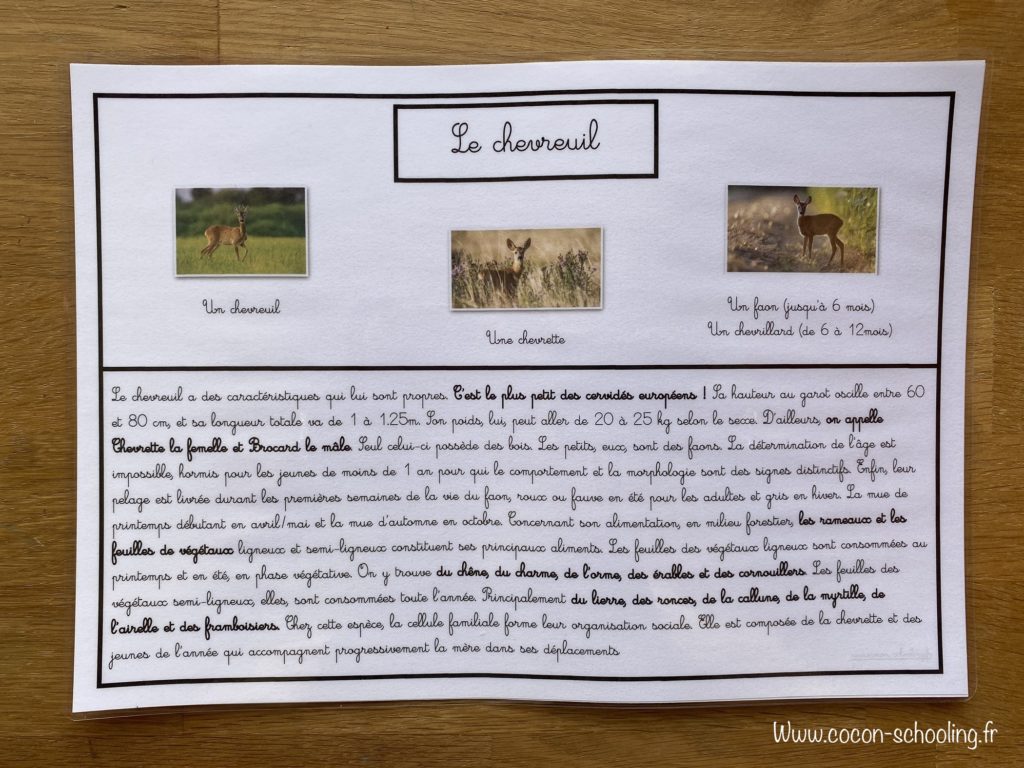 Le chevreuil
Un chevreuil
Une chevrette
Un faon (jusqu'à 6 mois)
Un chevrillard (de 6 à 12mois)
Le chevreuil a des caractéristiques qui lui sont propres. C'est le plus petit des cervidés européens ! Sa hauteur au garot oscille entre 60
et 80 cm, et sa longueur totale va de 1 à 1.25m. Son poids, lui, peut aller de 20 à 25 kg selon le sexe. D'ailleurs, on appelle
Chevrette la femelle et Brocard le mâle. Seul celui-ci possède des bois. Les petits, eux, sont des faons. La détermination de l'âge est
impossible, hormis pour les jeunes de moins de 1 an pour qui le comportement et la morphologie sont des signes distinctifs. Enfin, leur
pelage est livrée durant les premières semaines de la vie du faon, roux ou fauve en été pour les adultes et gris en hiver. La mue de
printemps débutant en avril/mai et la mue d'automne en octobre. Concernant son alimentation, en milieu forestier, les rameaux et les
feuilles de végétaux ligneux et semi-ligneux constituent ses principaux aliments. Les feuilles des végétaux ligneux sont consommées au
printemps et en été, en phase végétative. On y trouve du chêne, du charme, de l'orme, des érables et des cornouillers. Les feuilles des
végétaux semi-ligneux, elles, sont consommées toute l'année. Principalement du lierre, des ronces, de la callune, de la myrtille, de
l'airelle et des framboisiers. Chez cette espèce, la cellule familiale forme leur organisation sociale. Elle est composée de la chevrette et des
jeunes de l'année qui accompagnent progressivement la mère dans ses déplacements
Www.cocon-schooling.fr